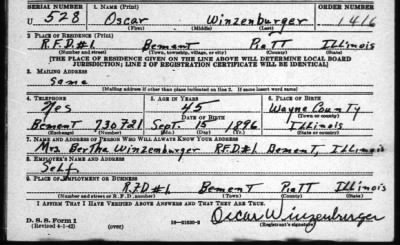 SERIAL NUMBER 1. NAME (Print) ORDER NUMBER
U 528 Oscar Winzenburger 1416
(First) (Middle) (Last)
2. PLACE OF RESIDENCE (Print)
R.F.D#1. Bement Piatt Illinois
(Number and street) (Town, township, village, or city) (County) (State)
[THE PLACE OF RESIDENCE GIVEN ON THE LINE ABOVE WILL DETERMINE LOCAL BOARD
JURISDICTION; LINE 2 OF REGISTRATION CERTIFICATE WILL BE IDENTICAL]
3. MAILING ADDRESS
Same
[Mailing address if other than place indicated on line 2. If same insert word same]
4. TELEPHONE 5. AGE IN YEARS 6. PLACE OF BIRTH
Yes 45 Wayne County
DATE OF BIRTH (Town or county)
Bement 730721 Sept. 15 1896 Illinois
(Exchange) (Number) (Mo.) (Day) (Yr.) (State or country)
7. NAME AND ADDRESS OF PERSON WHO WILL ALWAYS KNOW YOUR ADDRESS
Mrs Bertha Winzenburger R.F.D#1. Bement, Illinois
8. EMPLOYER'S NAME AND ADDRESS
Self
9. PLACE OF EMPLOYMENT OR BUSINESS
R.F.D#1. Bement Piatt Illinois
(Number and street or R. F. D. number) (Town) (County) (State)
I AFFIRM THAT I HAVE VERIFIED ABOVE ANSWERS AND THAT THEY ARE TRUE.
Oscar Winzenburger
D. S. S. Form 1
(Revised 4-1-42) (over) (Registrant's signature)